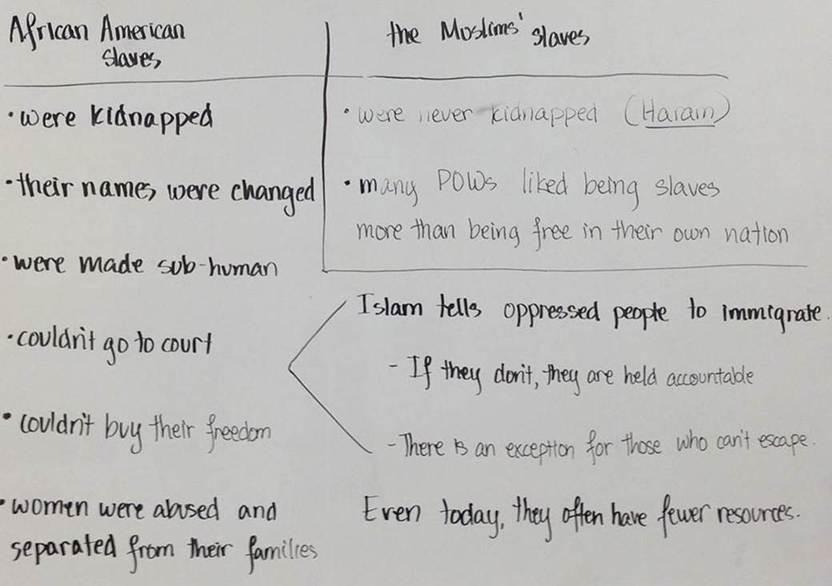 African American
Slaves
• were kidnapped
• their names were changed
• were made sub-human
• couldn't go to court
• couldn't buy their freedom
• women were abused and
separated from their families
the Muslims' slaves
• were never kidnapped (Haram)
• many POWs liked being slaves
more than being free in their own nation
Islam tells oppressed people to immigrate.
- If they don't, they are held accountable
- There is an exception for those who can't escape.
Even today, they often have fewer resources.